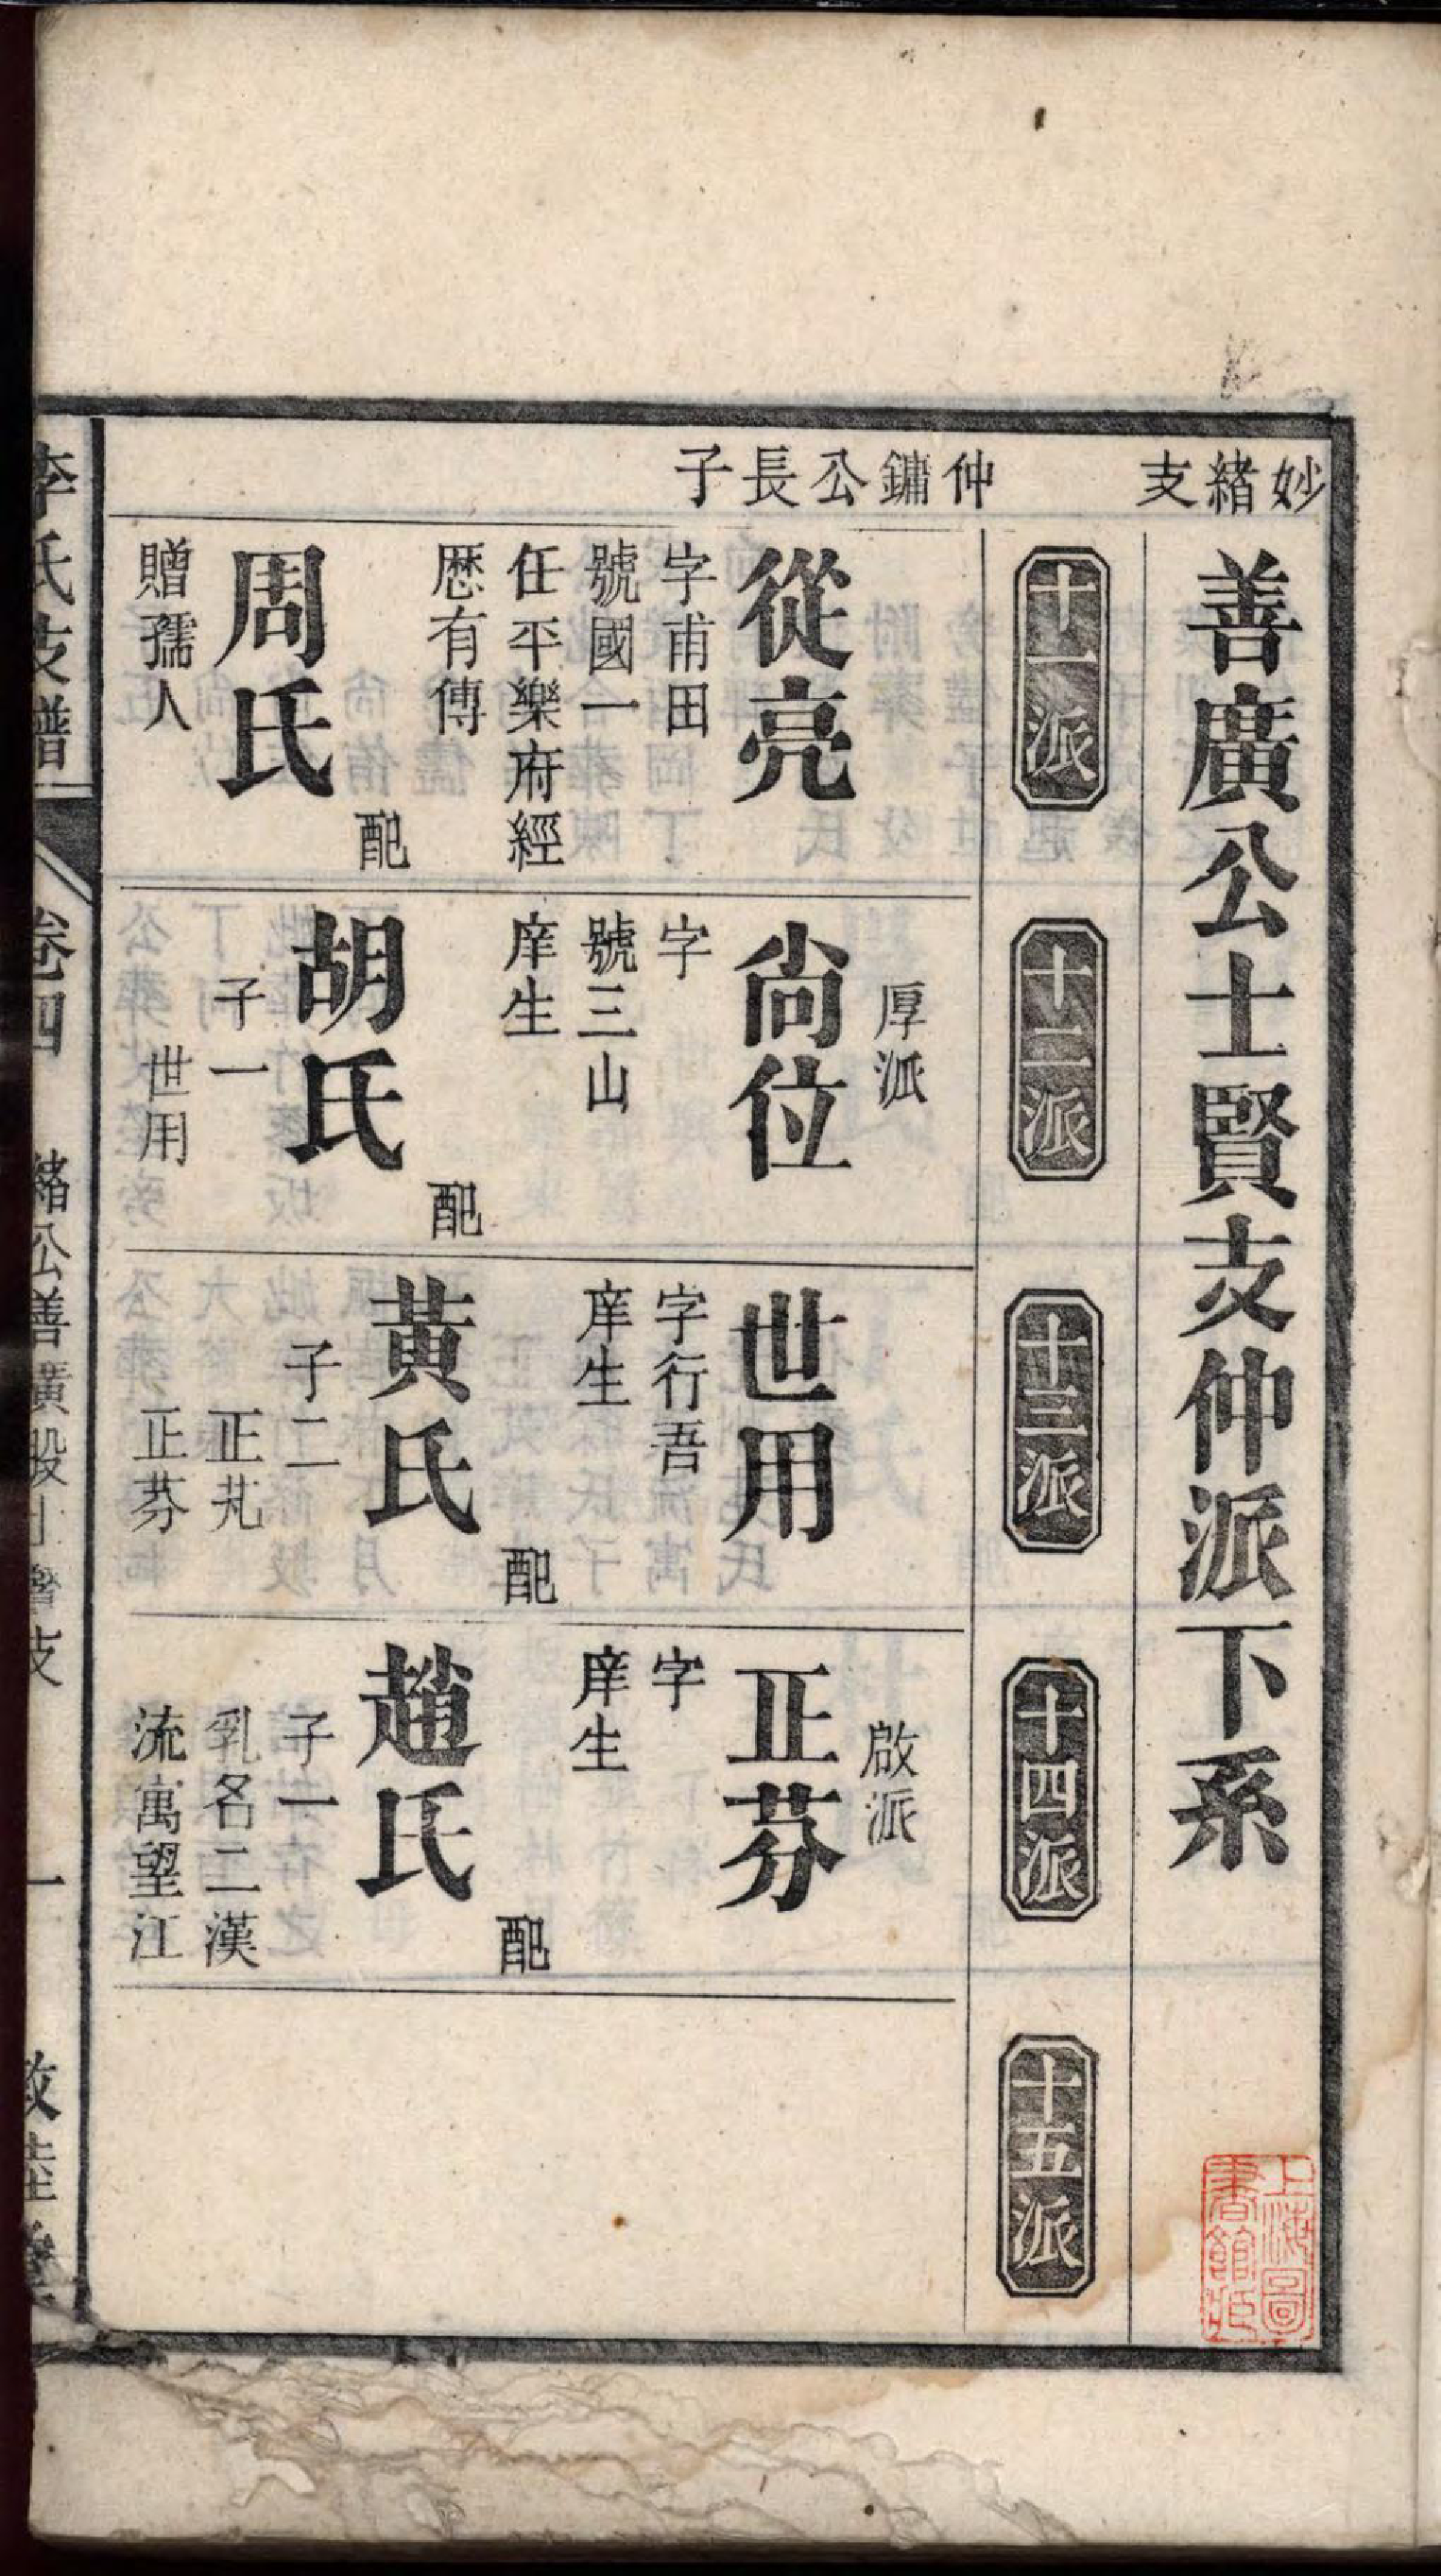 妙緒支
仲鏞公長子
善廣公士賢支仲派下系
十一派
十二派
十三派
十四派
十五派
從亮
字甫田
號國一
任平樂府經
歷有傳
配
周氏
贈孺人
厚派
尚位
字
號三山
庠生
配
胡氏
子一
世用
世用
字行吾
庠生
配
黃氏
子二
正芃
正芬
啟派
正芬
字
庠生
配
趙氏
子一
乳名二漢
流寓望江
李氏支譜
卷四
緒公善廣股士賢支
一
敦睦堂
上海圖
書館藏